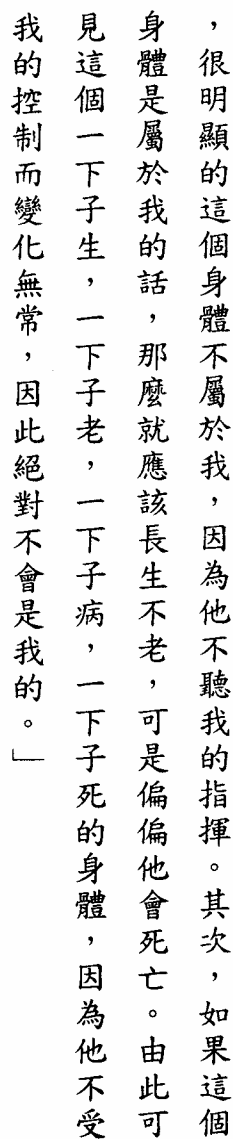 ，很明顯的這個身體不屬於我，因為他不聽我的指揮。其次，如果這個
身體是屬於我的話，那麼就應該長生不老，可是偏偏他會死亡。由此可
見這個一下子生，一下子老，一下子病，一下子死的身體，因為他不受
我的控制而變化無常，因此絕對不會是我的。」